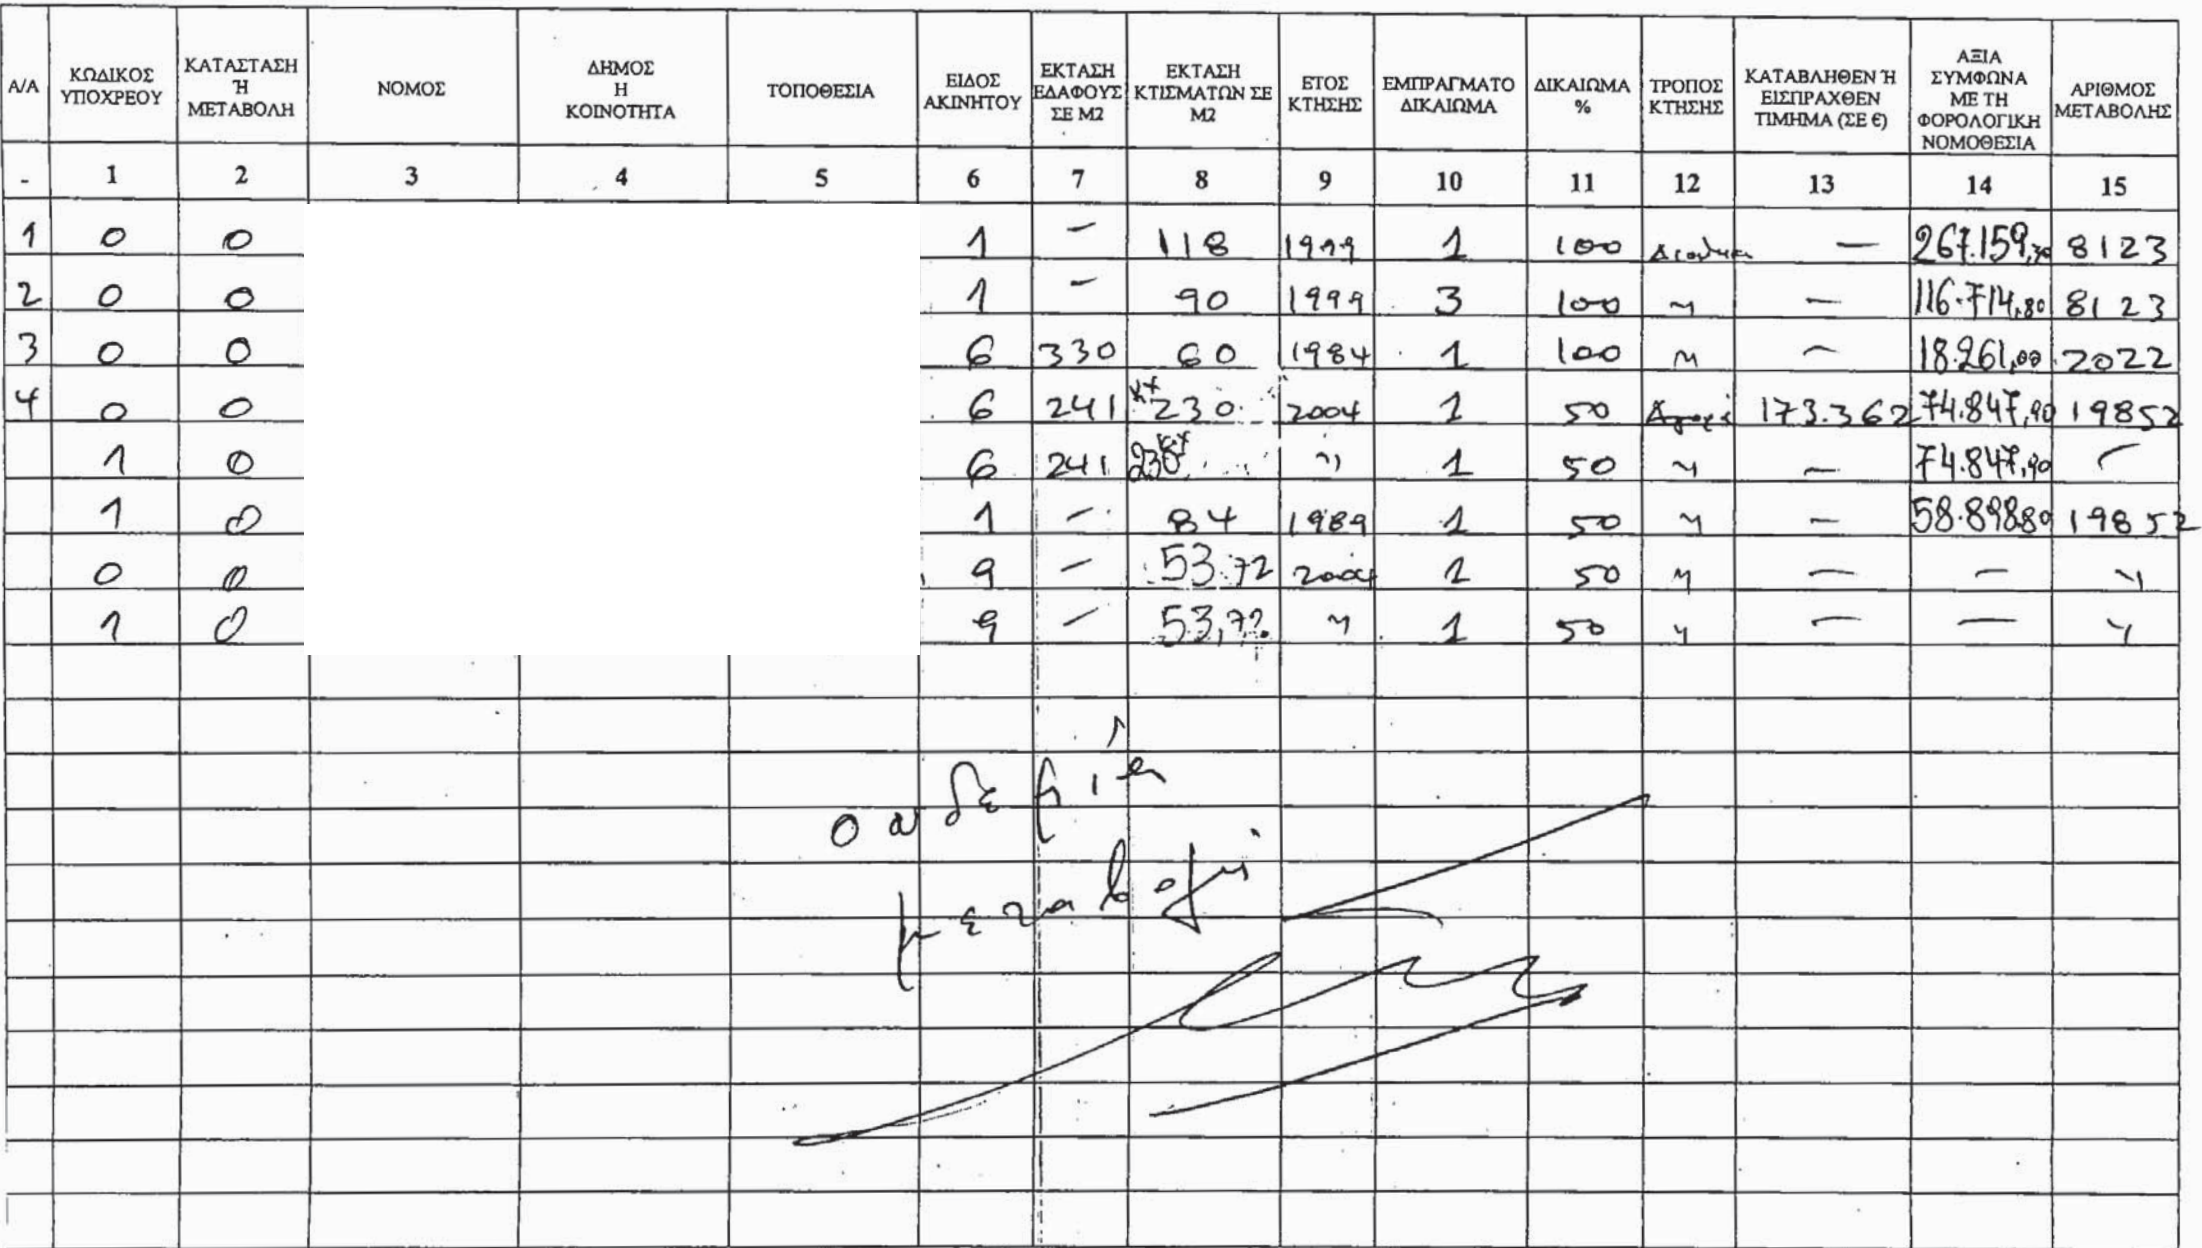 Α/Α ΚΩΔΙΚΟΣ ΥΠΟΧΡΕΟΥ ΚΑΤΑΣΤΑΣΗ Ή ΜΕΤΑΒΟΛΗ ΝΟΜΟΣ ΔΗΜΟΣ Η ΚΟΙΝΟΤΗΤΑ ΤΟΠΟΘΕΣΙΑ ΕΙΔΟΣ ΑΚΙΝΗΤΟΥ ΕΚΤΑΣΗ ΕΔΑΦΟΥΣ ΣΕ Μ2 ΕΚΤΑΣΗ ΚΤΙΣΜΑΤΩΝ ΣΕ Μ2 ΕΤΟΣ ΚΤΗΣΗΣ ΕΜΠΡΑΓΜΑΤΟ ΔΙΚΑΙΩΜΑ ΔΙΚΑΙΩΜΑ % ΤΡΟΠΟΣ ΚΤΗΣΗΣ ΚΑΤΑΒΛΗΘΕΝ Ή ΕΙΣΠΡΑΧΘΕΝ ΤΙΜΗΜΑ (ΣΕ €) ΑΞΙΑ ΣΥΜΦΩΝΑ ΜΕ ΤΗ ΦΟΡΟΛΟΓΙΚΗ ΝΟΜΟΘΕΣΙΑ ΑΡΙΘΜΟΣ ΜΕΤΑΒΟΛΗΣ
- 1 2 3 4 5 6 7 8 9 10 11 12 13 14 15
1 0 0 1 - 118 1999 1 100 — 267.159, 8123
2 0 0 1 - 90 1999 3 100 〃 — 116.714,80 8123
3 0 0 6 330 60 1984 1 100 〃 — 18.261,00 2022
4 0 0 6 241 230 2004 1 50 Αγορά 173.362 74.847,90 19852
1 0 6 241 230 〃 1 50 〃 — 74.847,90 —
1 0 1 - 84 1989 1 50 〃 — 58.898,80 19852
0 0 9 - 53.72 2004 1 50 〃 — — 〃
1 0 9 - 53,72 〃 1 50 〃 — — 〃
ουδεμία
μεταβολή